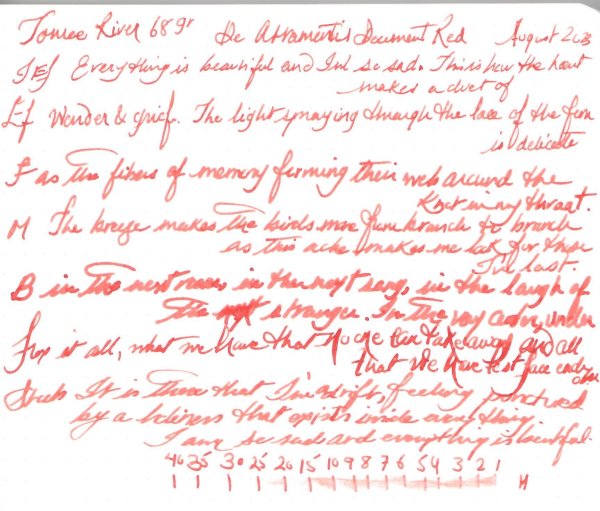 Tomoe River 68gr De Atramentis Document Red August 2023
JEf Everything is beautiful and I'm so sad. This is how the heart
makes a duet of
Ef Wonder & grief. The light spraying through the lace of the fern
is delicate
F as the fibers of memory forming their web around the
knot in my throat.
M The breeze makes the birds move from branch to branch
as this ache makes me look for those
I've lost.
B in the next room, in the next song, in the laugh of
the next stranger. In the very center, under
Fox it all, what we have that no one can take away and all
that we have lost face each other
Stub It is there that I'm adrift, feeling punctured
by a holiness that exists inside everything.
I am so sad and everything is beautiful.
40 35 30 25 20 15 10 9 8 7 6 5 4 3 2 1 M